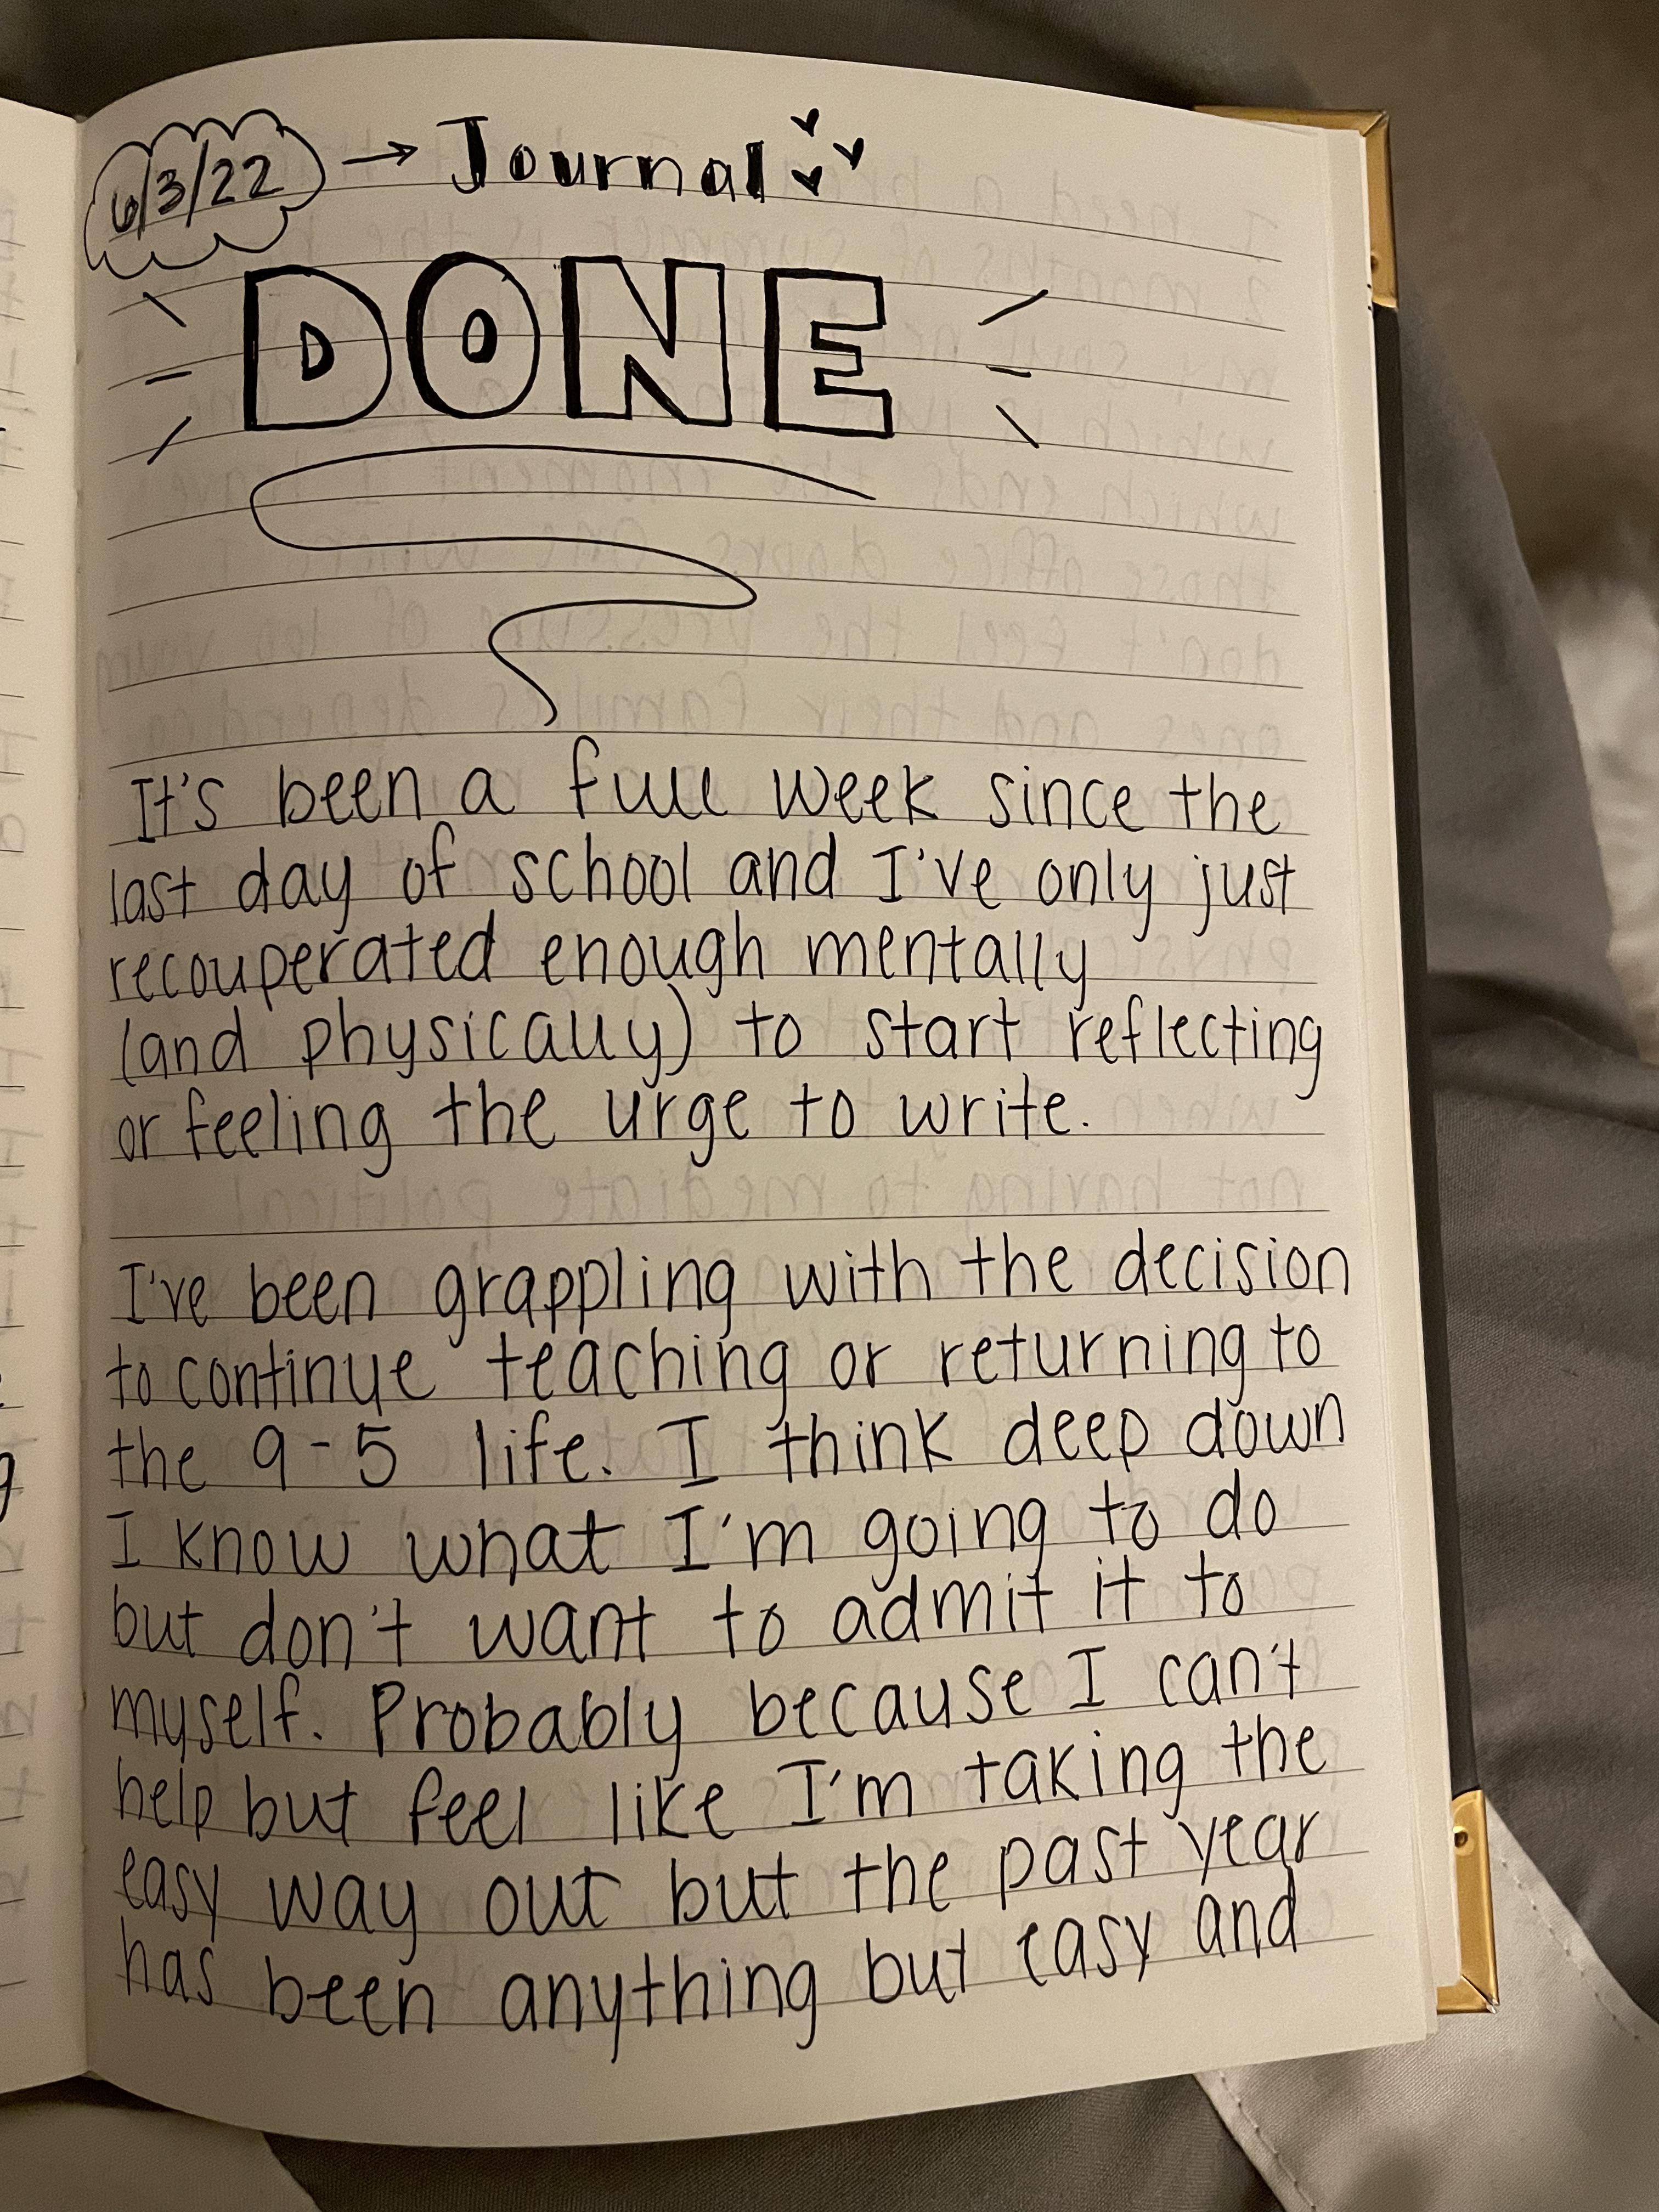 6/3/22 → Journal
DONE
It's been a full week since the
last day of school and I've only just
recouperated enough mentally
(and physically) to start reflecting
or feeling the urge to write.
I've been grappling with the decision
to continue teaching or returning to
the 9-5 life. I think deep down
I know what I'm going to do
but don't want to admit it to
myself. Probably because I can't
help but feel like I'm taking the
easy way out but the past year
has been anything but easy and